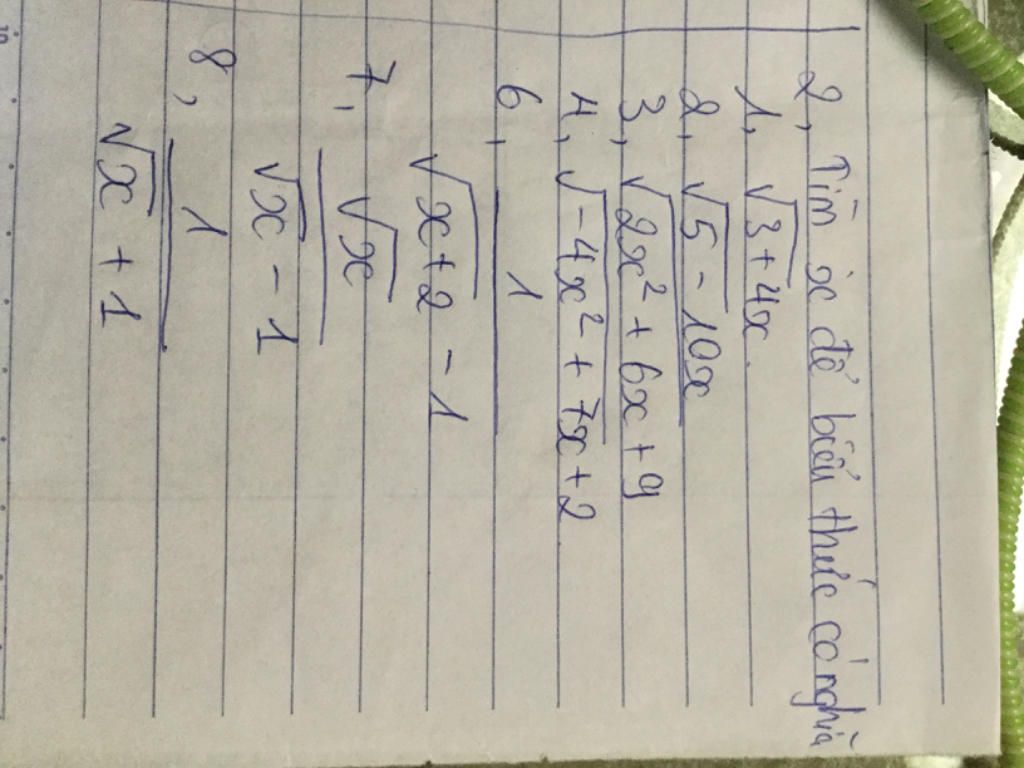 2, Tìm x để biểu thức có nghĩa
1, √3+4x.
2, √5-10x
3, √2x² + 6x + 9
4, √-4x² + 7x + 2
6, 1
√x+2 - 1
7, √x
√x - 1
8, 1
√x + 1